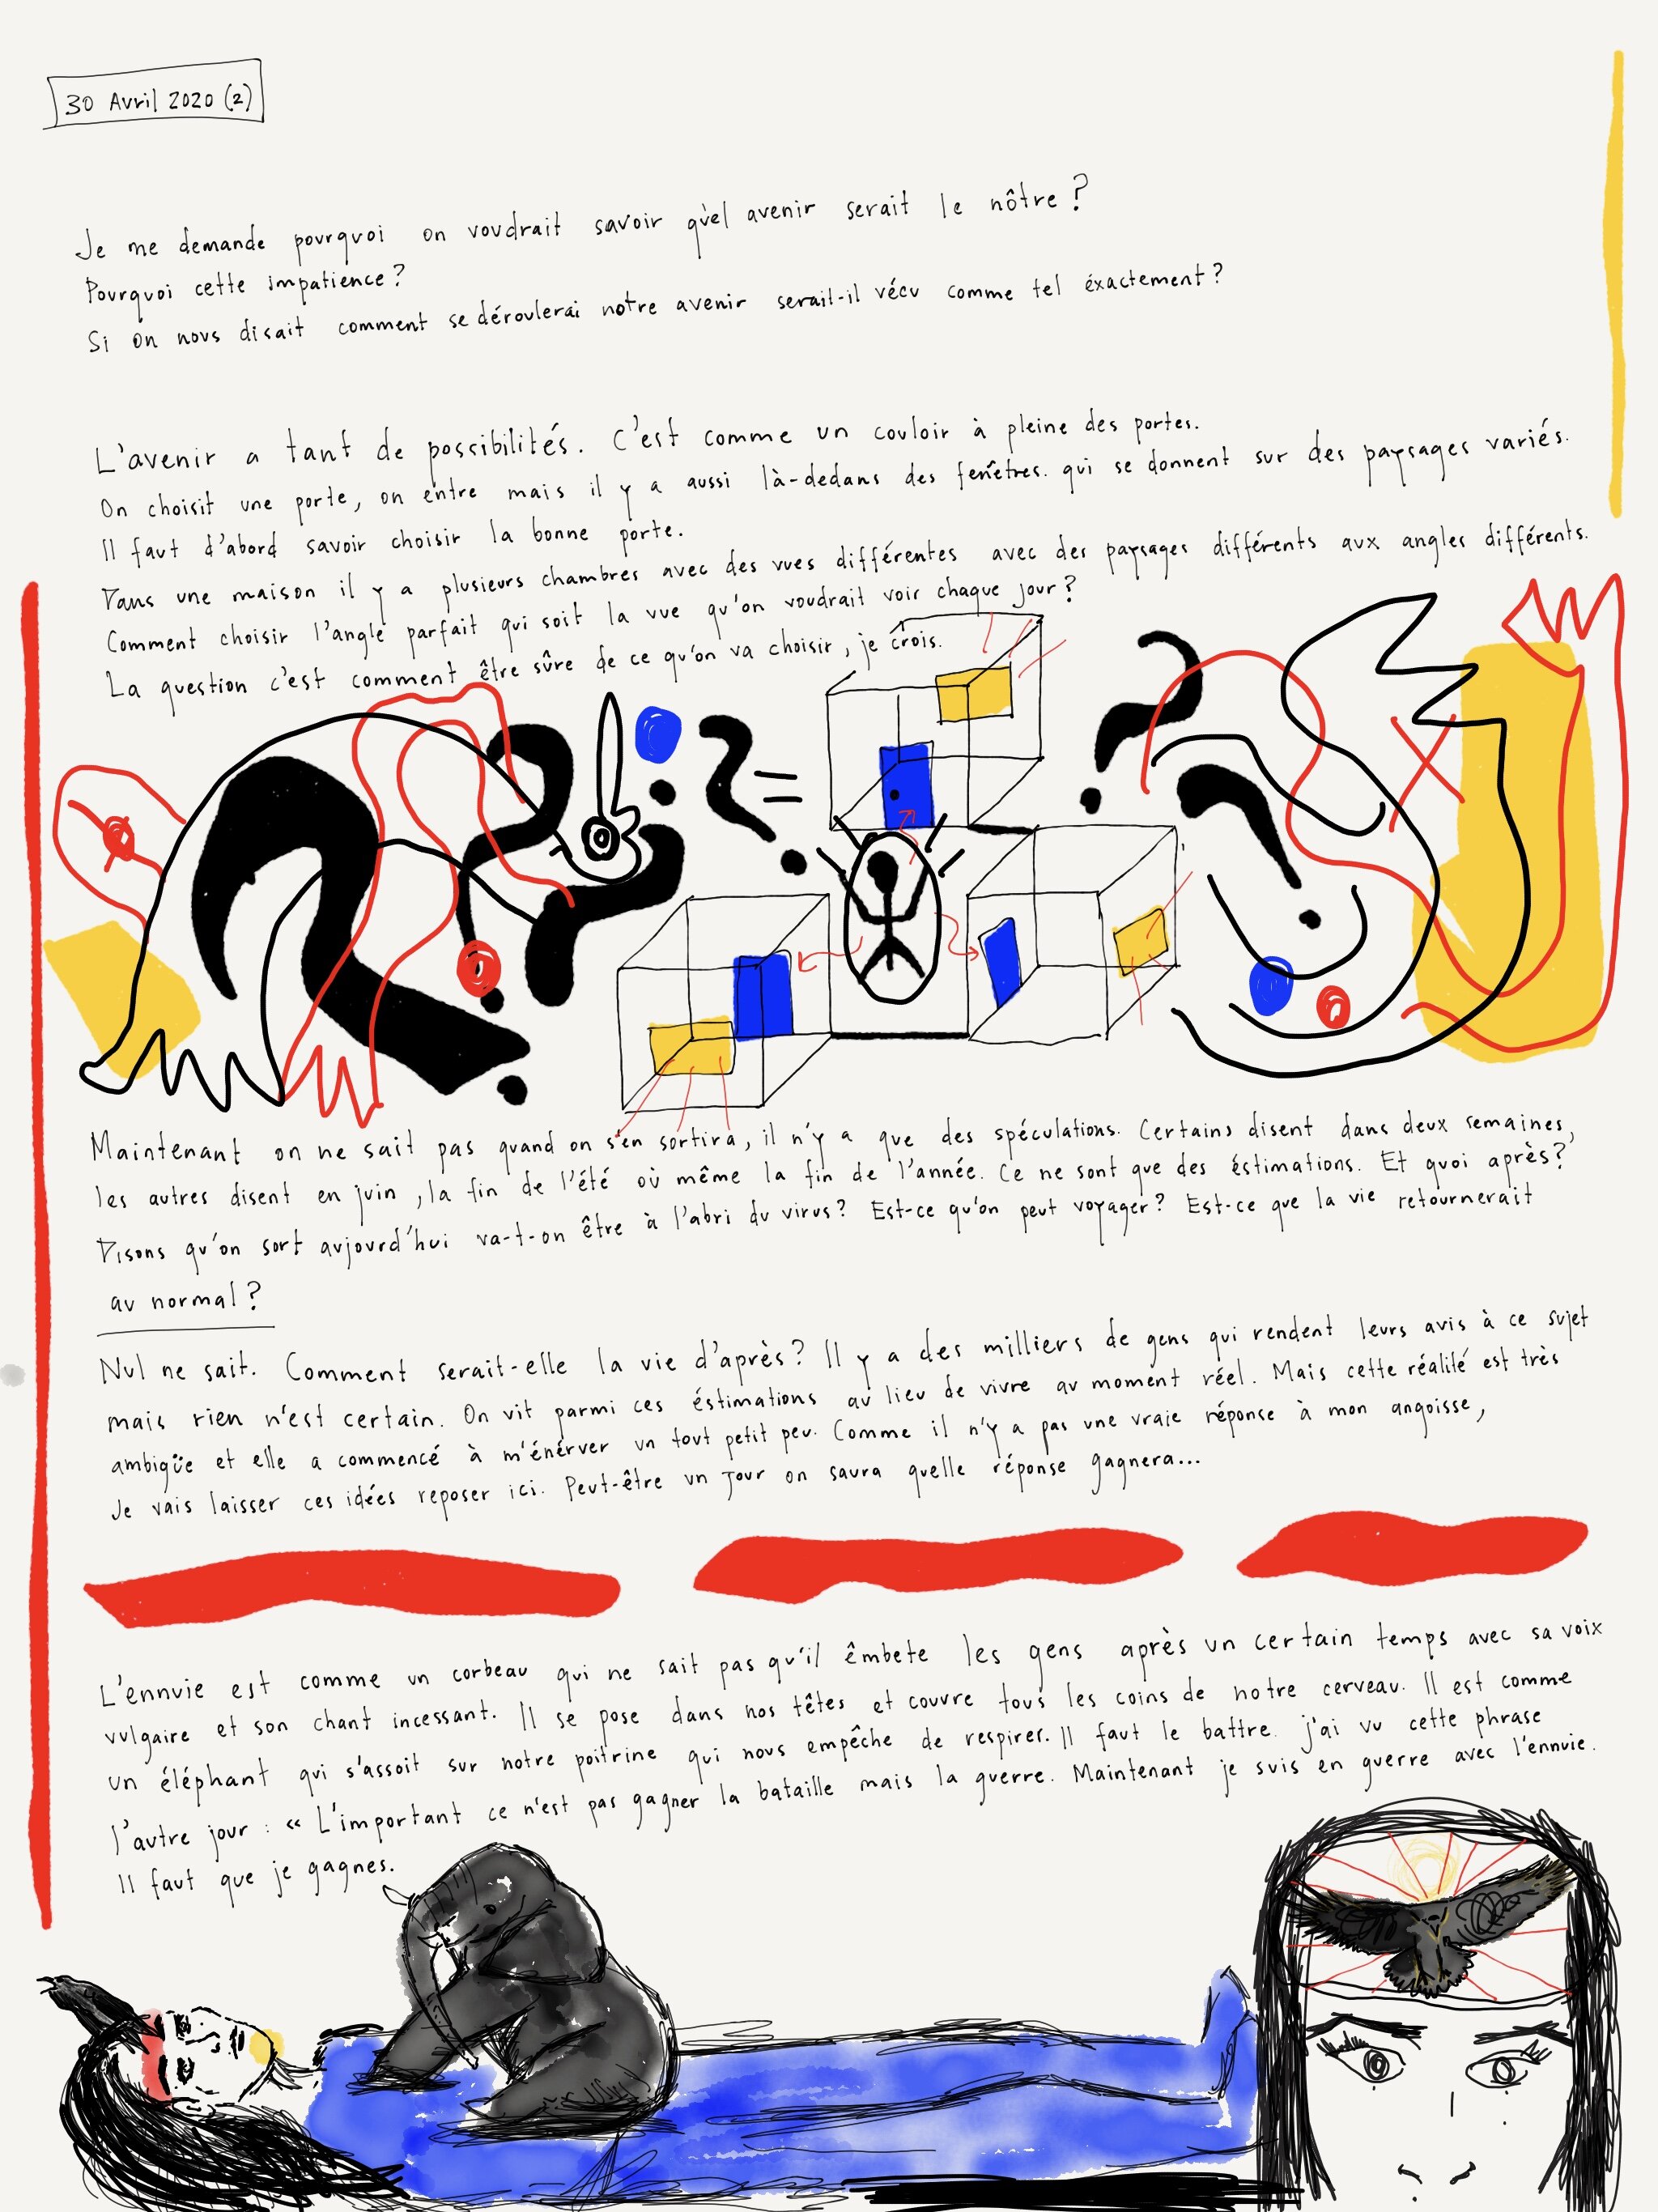 30 Avril 2020 (2)
Je me demande pourquoi on voudrait savoir quel avenir serait le nôtre ?
Pourquoi cette impatience ?
Si on nous disait comment se déroulerai notre avenir serait-il vécu comme tel éxactement ?
L'avenir a tant de possibilités. C'est comme un couloir à pleine des portes.
On choisit une porte, on entre mais il y a aussi là-dedans des fenêtres. qui se donnent sur des paysages variés.
Il faut d'abord savoir choisir la bonne porte.
Dans une maison il y a plusieurs chambres avec des vues différentes avec des paysages différents aux angles différents.
Comment choisir l'angle parfait qui soit la vue qu'on voudrait voir chaque jour ?
La question c'est comment être sûre de ce qu'on va choisir, je crois.
Maintenant on ne sait pas quand on s'en sortira, il n'y a que des spéculations. Certains disent dans deux semaines,
les autres disent en juin, la fin de l'été où même la fin de l'année. Ce ne sont que des éstimations. Et quoi après ?
Disons qu'on sort aujourd'hui va-t-on être à l'abri du virus ? Est-ce qu'on peut voyager ? Est-ce que la vie retournerait
au normal ?
Nul ne sait. Comment serait-elle la vie d'après ? Il y a des milliers de gens qui rendent leurs avis à ce sujet
mais rien n'est certain. On vit parmi ces éstimations au lieu de vivre au moment réel. Mais cette réalité est très
ambigüe et elle a commencé à m'énérver un tout petit peu. Comme il n'y a pas une vraie réponse à mon angoisse,
Je vais laisser ces idées reposer ici. Peut-être un jour on saura quelle réponse gagnera...
L'ennuie est comme un corbeau qui ne sait pas qu'il êmbete les gens après un certain temps avec sa voix
vulgaire et son chant incessant. Il se pose dans nos têtes et couvre tous les coins de notre cerveau. Il est comme
un éléphant qui s'assoit sur notre poitrine qui nous empêche de respirer. Il faut le battre. j'ai vu cette phrase
l'autre jour : « L'important ce n'est pas gagner la bataille mais la guerre. Maintenant je suis en guerre avec l'ennuie.
Il faut que je gagnes.